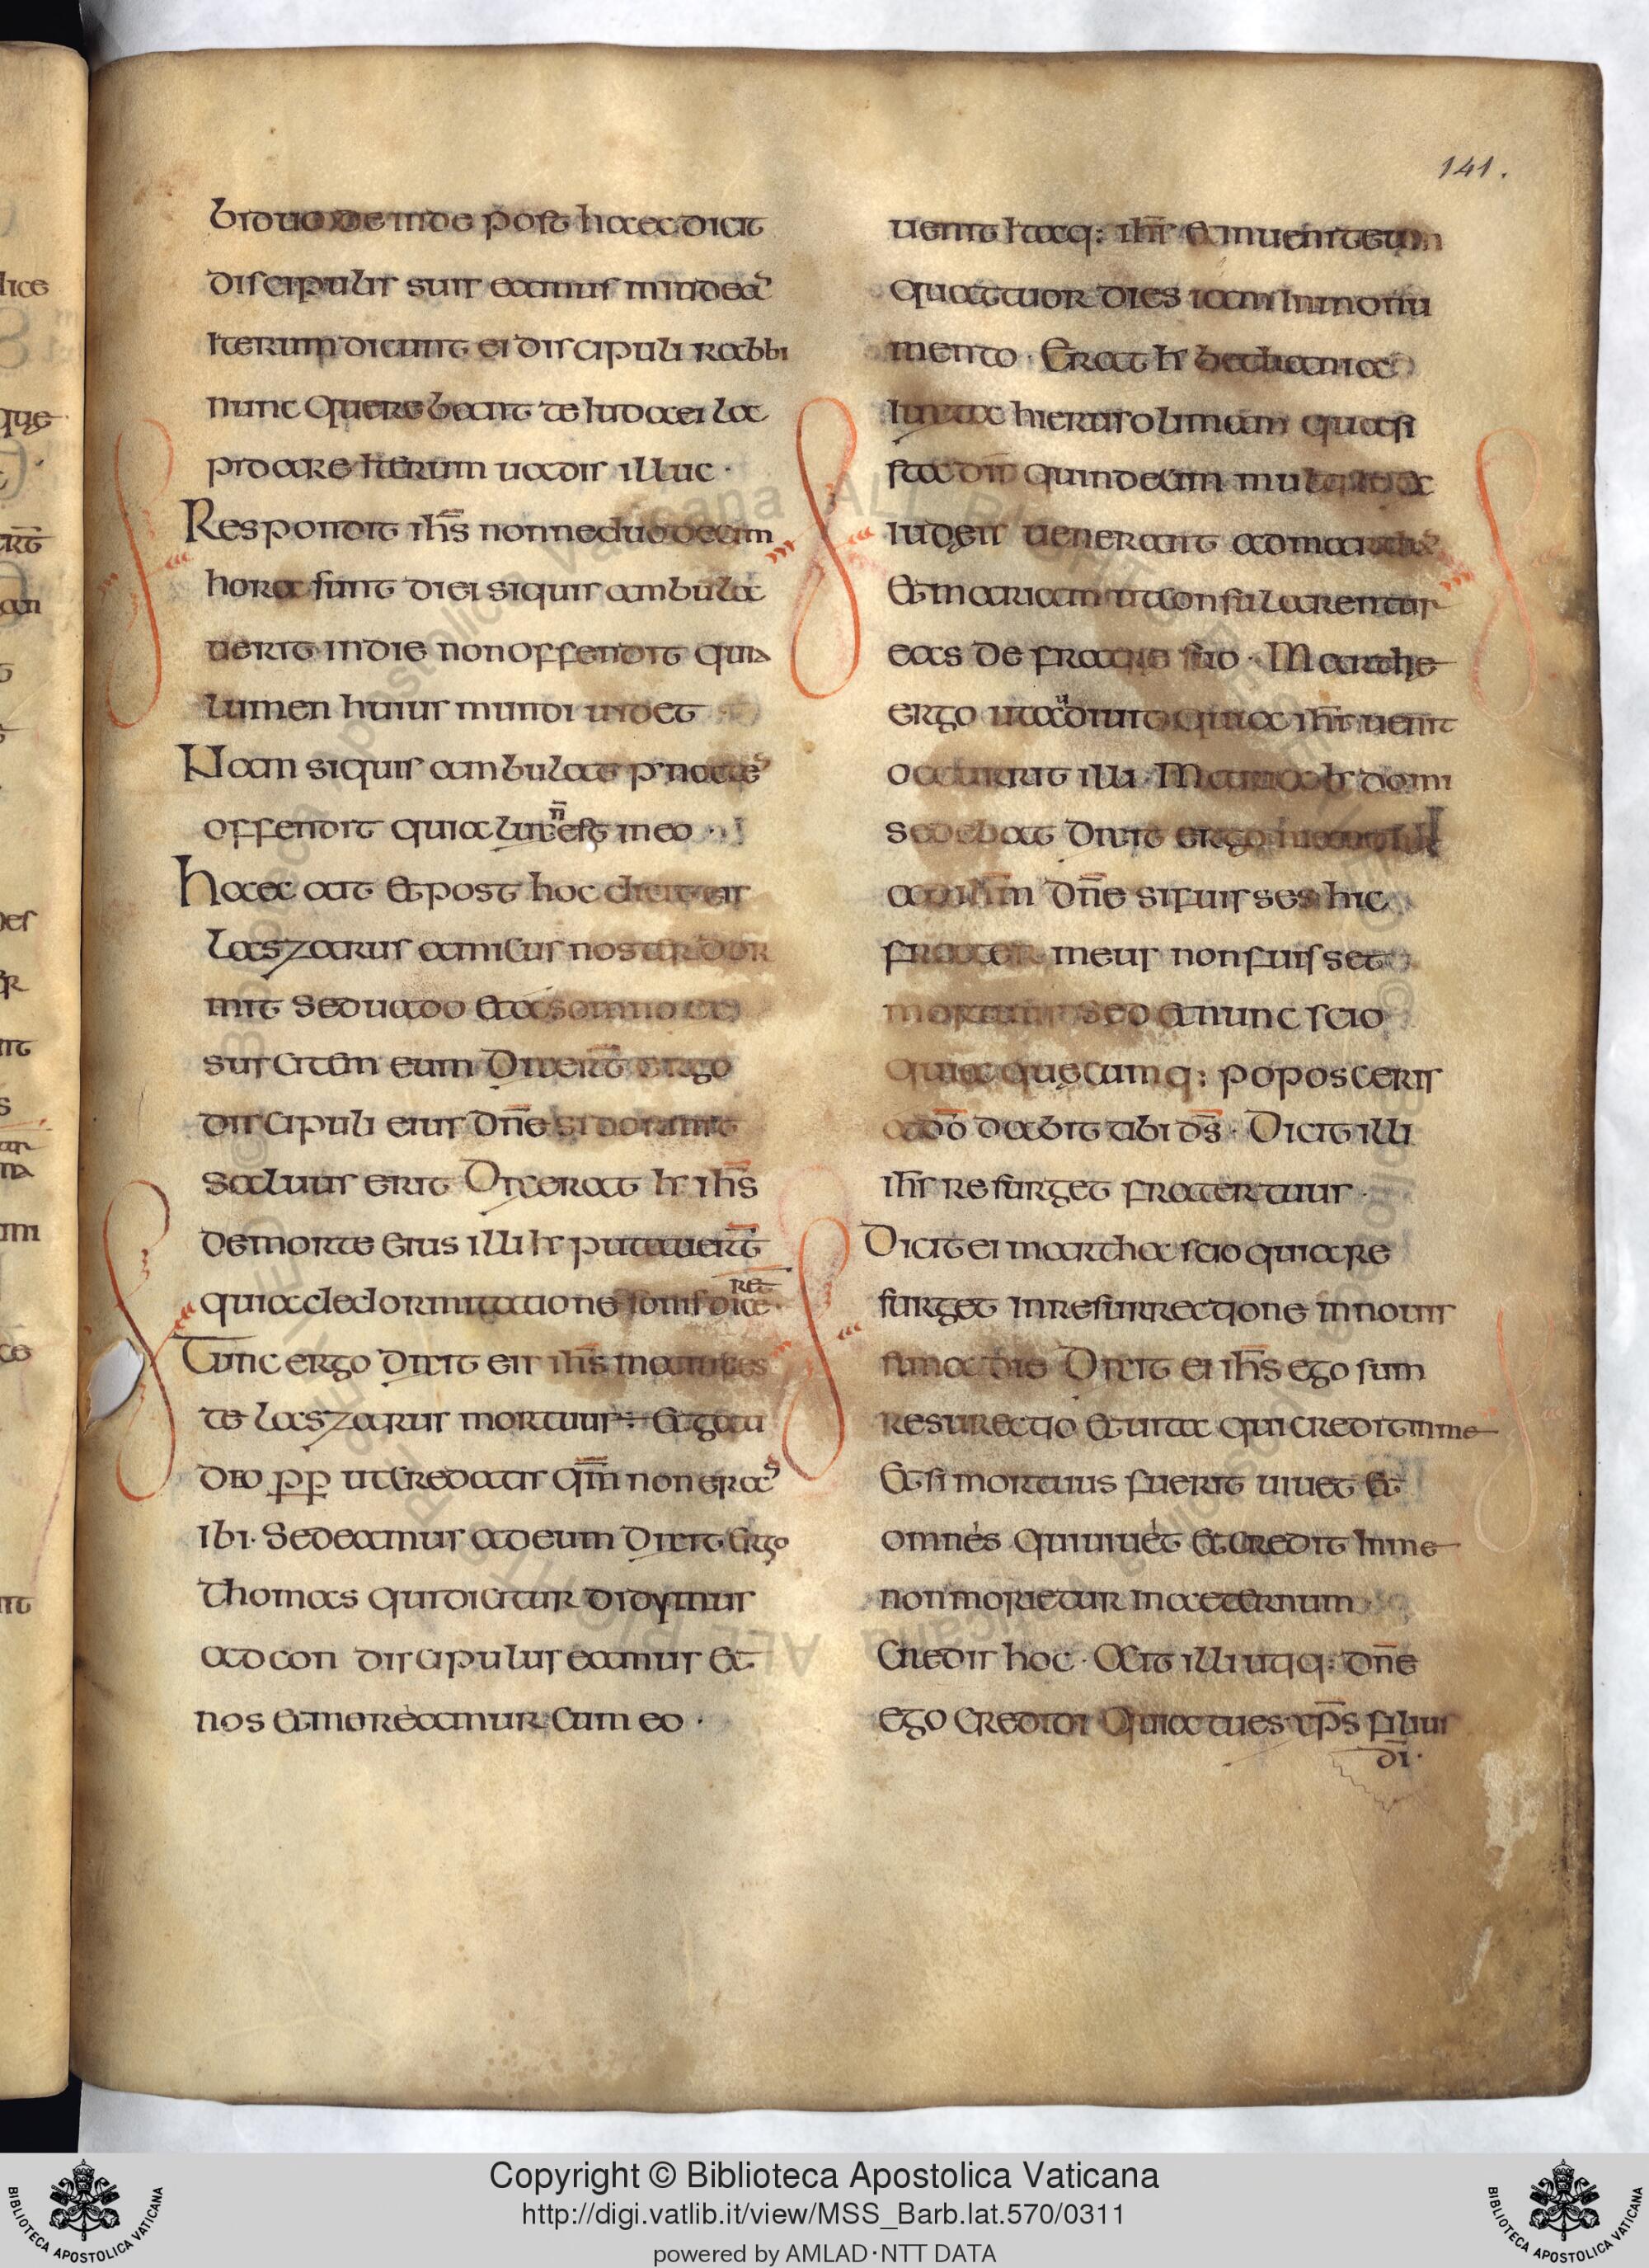 141.
biduo deinde post haec dicit
discipulis suis eamus in iudeā
Iterum dicunt ei discipuli rabbi
nunc querebant te Iudaei la
pidare Iterum uadis illuc ·
Respondit ihs̄ nonne duodecim
hora sunt diei siquis ambula
uerit in die non offendit quia
lumen huius mundi uidet
Nam siquis ambulat p' nocte
offendit quia lux n̄ est in eo ·
Haec ait et post hoc dicit eis
laszarus amicus noster dor
mit sed uado et a somno ex
suscitem eum Dixer̄t ergo
discipuli eius dn̄e si dormit
saluus erit Dixerat h' ihs̄
de morte eius illi h' putauer̄t
quia de dormitatione somp dice
ret̄
Tunc ergo dixit eis ihs̄ manifes
te laszarus mortuus · et gau
deo pp ut credatis qm̄ non erā
Ibi · Sed eamus ad eum dixit ergo
Thomas qui dicitur didymus
ad con discipulus eamus et
nos et moreamur cum eo ·
uenit Itaq: ihs̄ et inuenit eum
quattuor dies iam In monu
mento · Erat h' bethania
Iuxta hierusolimam quasi
sta diī quindecim
iudęis uenerant ad
et mariam ut consularentur
eas de fratre suo · Marthe
ergo ut audiuit quia ihs̄ uenit
occurrit illi · Maria h' domi
sedebat Dixit ergo
dn̄e si fuisses hic
frater meus non fuisset
sed et nunc scio
quia quęcumq: poposceris
a dō dabit tibi ds̄ · Dicit illi
ihs̄ resurget frater tuus ·
Dicit ei martha scio quia re
surget in resurrectione in nouis
sima die Dixit ei ihs̄ ego sum
resurectio et uita qui credit in me
et si mortuus fuerit uiuet et
omnés qui uiuét et credit In me
non morietur in aeternum
Credis hoc · Ait illi utiq: dn̄e
ego credidi quia tu es xp̄s filius
dī ·
Copyright © Biblioteca Apostolica Vaticana
http://digi.vatlib.it/view/MSS_Barb.lat.570/0311
powered by AMLAD·NTT DATA
BIBLIOTECA APOSTOLICA VATICANA
BIBLIOTECA APOSTOLICA VATICANA